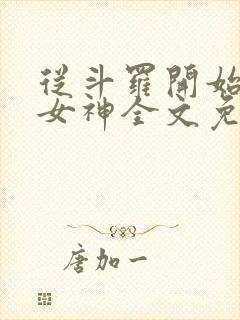 從斗羅開始
女神全文免
唐加一